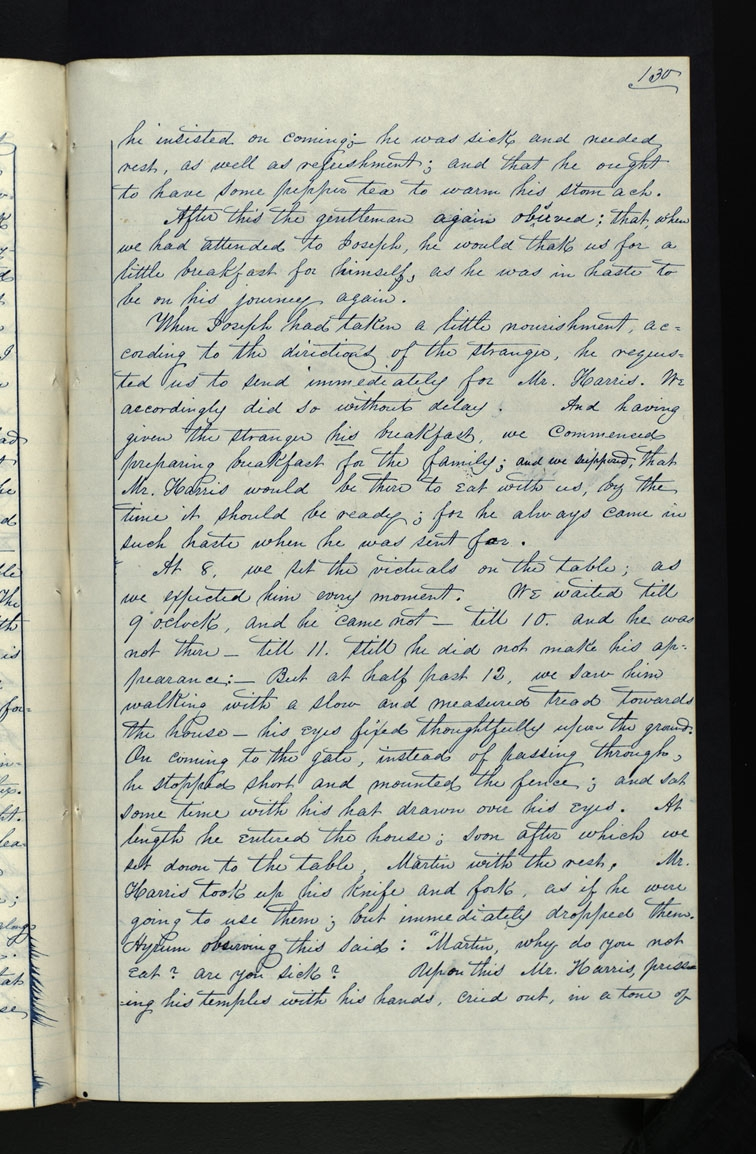 130
he insisted on coming;— he was sick and needed
rest, as well as refeishment; and that he ought
to have some pepper tea to warm his stom ach.
After this the gentleman again observed; that, when
we had attended to Joseph, he would thak us for a
little breakfast for himself, as he was in haste to
be on his journey again.
When Joseph had taken a little nourishment, ac=
cording to the directions of the stranger, he reques=
ted us to send immediately for Mr. Harris. We
accordingly did so without delay. And having
given the stranger his breakfast, we commenced
preparing breakfast for the family; and we suppored, that
Mr. Harris would be there to eat with us, by the
time it should be ready; for he always came in
such haste when he was sent for.
At 8, we set the victuals on the table; as
we expected him every moment. We waited till
9 oclock, and he came not — till 10. and he was
not there — till 11. still he did not make his ap-
pearance:— But at half past 12, we saw him
walking with a slow and measured tread towards
the house — his eyes fixed thoughtfully upon the ground.
On coming to the gate, instead of passing through,
he stopped short and mounted the fence; and sat
some time with his hat drawn over his eyes. At
length he entered the house; soon after which we
set down to the table, Martin with the rest. Mr.
Harris took up his knife and fork, as if he were
going to use them; but immediately dropped them.
Hyrum observing this said: "Martin, why do you not
eat? are you sick? Upon this Mr. Harris, press=
ing his temples with his hands, cried out, in a tone of